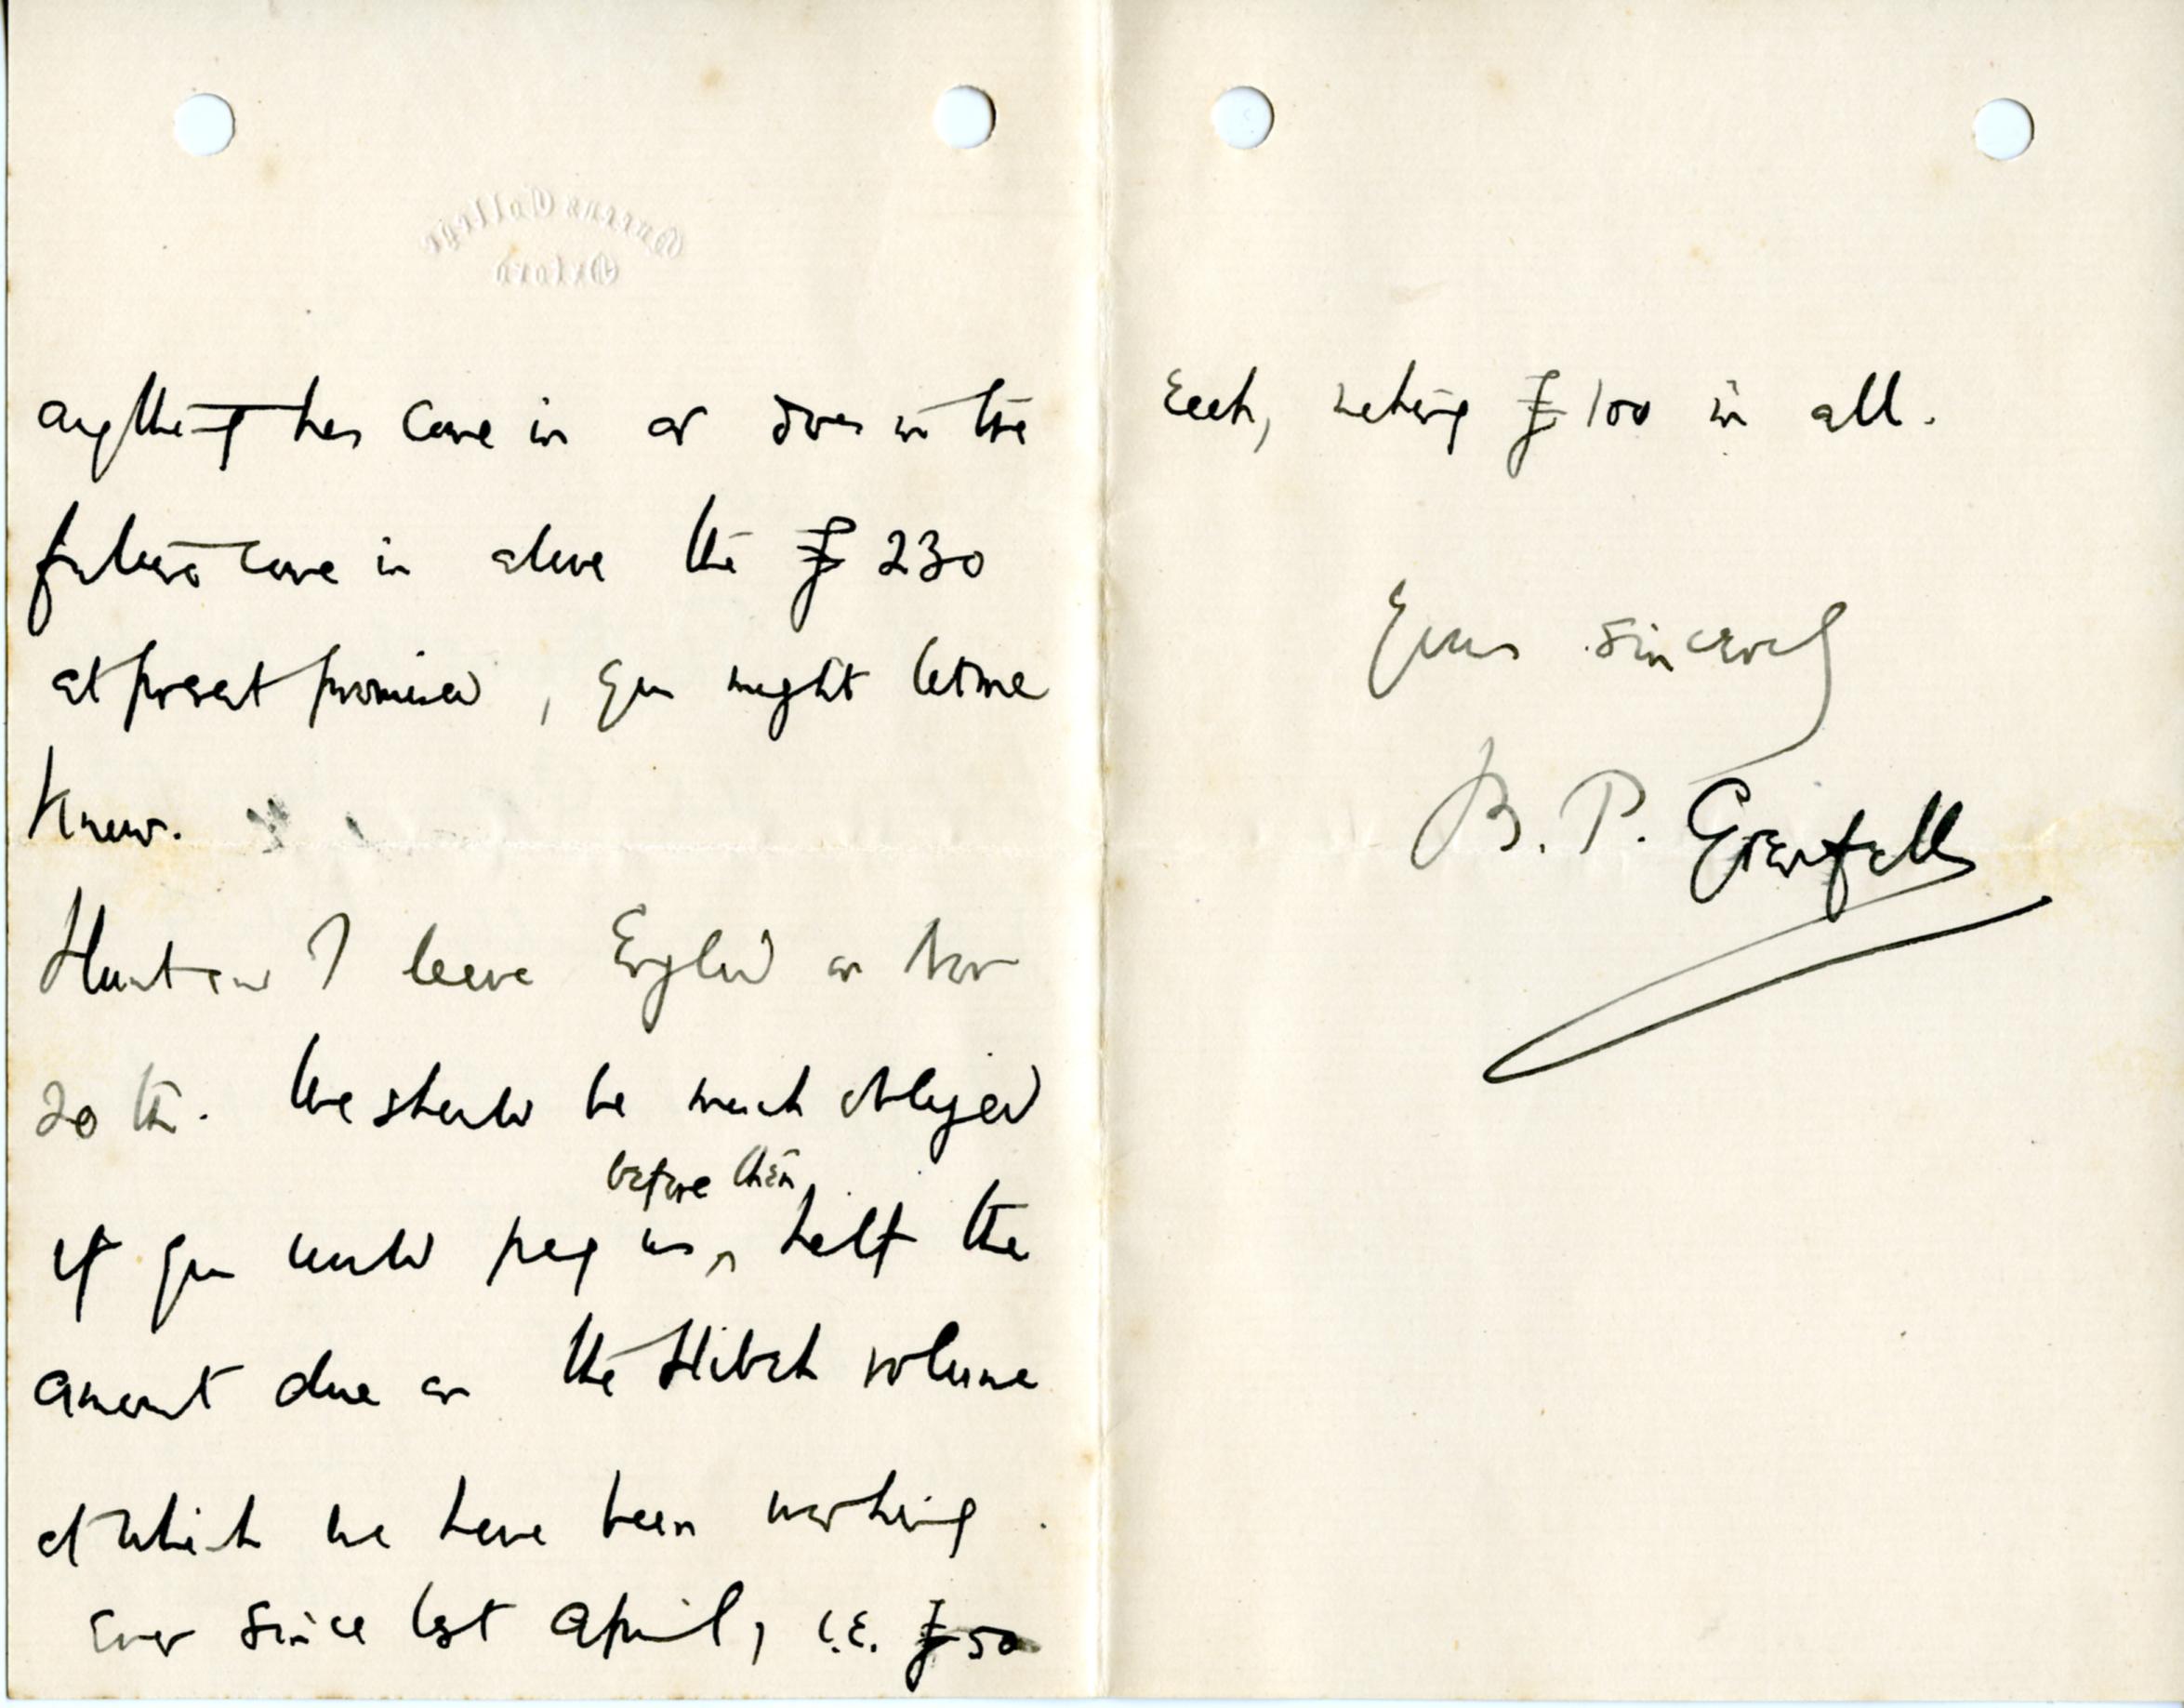 Queens College
Oxford
anything has come in or does in the
future come in above the £230
at present promised, you might let me
know.
Hunt and I leave England on Nov
20th. We should be much obliged
before then
if you would pay us ^ half the
amount due on the Hibeh volume
at which we have been working
ever since last April, i.e. £50
each, making £100 in all.
Yours sincerely
B. P. Grenfell